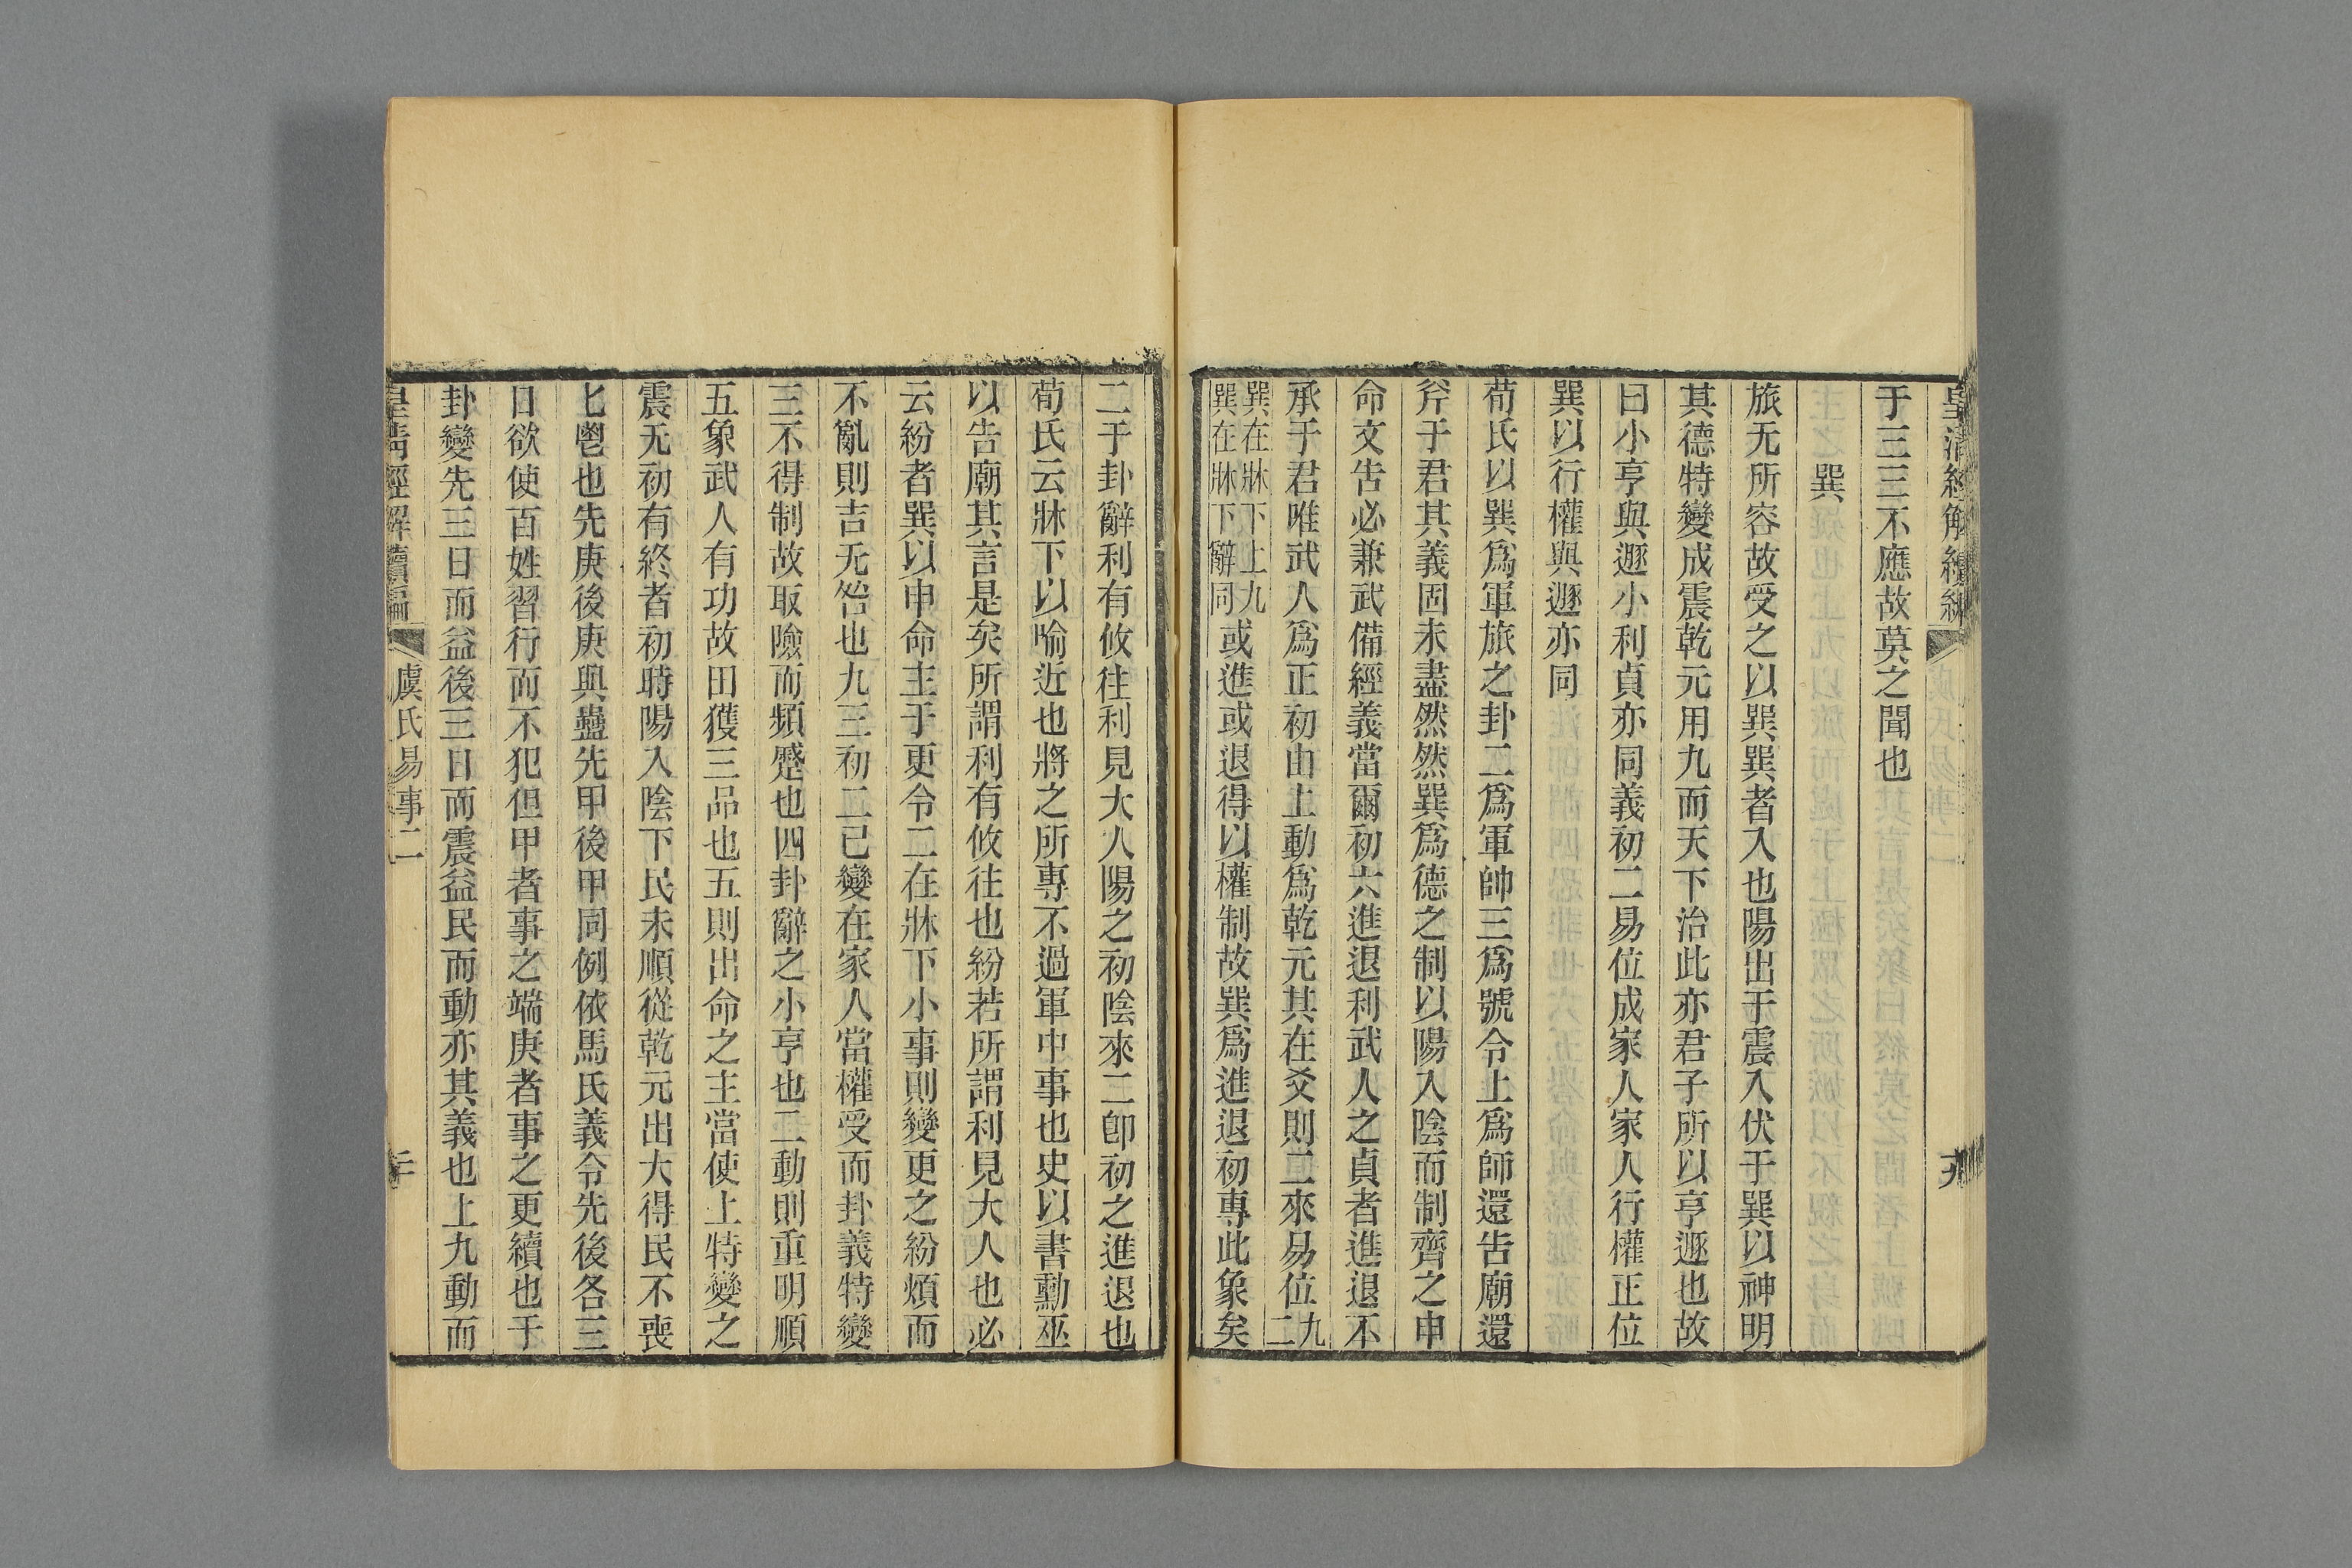 皇清經解續編
于三三不應故莫之聞也
巽
旅无所容故受之以巽巽者入也陽出于震入伏于巽以神明
其德特變成震乾元用九而天下治此亦君子所以亨遯也故
曰小亨與遯小利貞亦同義初二易位成家人家人行權正位
巽以行權與遯亦同
荀氏以巽爲軍旅之卦二爲軍帥三爲號令上爲師還告廟還
斧于君其義固未盡然然巽爲德之制以陽入陰而制齊之申
命文告必兼武備經義當爾初六進退利武人之貞者進退不
承于君唯武人爲正初由上動爲乾元其在爻則二來易位九二
巽在牀下上九巽在牀下辭同或進或退得以權制故巽爲進退初專此象矣
二于卦辭利有攸往利見大人陽之初陰來二卽初之進退也
荀氏云牀下以喻近也將之所專不過軍中事也史以書勳巫
以告廟其言是矣所謂利有攸往也紛若所謂利見大人也必
云紛者巽以申命主于更令二在牀下小事則變更之紛煩而
不亂則吉无咎也九三初二已變在家人當權受而卦義特變
三不得制故取險而頻蹙也四卦辭之小亨也二動則重明順
五象武人有功故田獲三品也五則出命之主當使上特變之
震无初有終者初時陽入陰下民未順從乾元出大得民不喪
匕鬯也先庚後庚與蠱先甲後甲同例依馬氏義令先後各三
日欲使百姓習行而不犯但甲者事之端庚者事之更續也于
卦變先三日而益後三日而震益民而動亦其義也上九動而
皇清經解續編 虞氏易事二